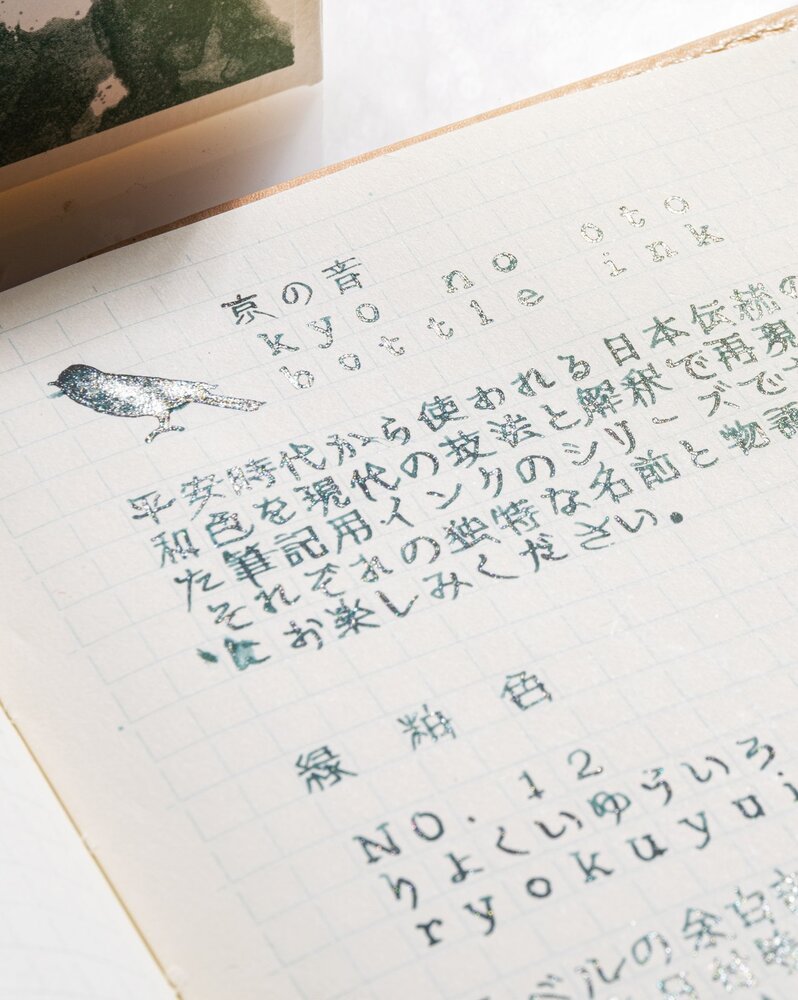 京の音
kyo no oto
bottle ink
平安時代から使われる日本伝統の
和色を現代の技法と解釈で再現
た筆記用インクのシリーズで
それぞれの独特な名前と物語
にお楽しみください。
緑釉色
NO. 12
りょくいゆういろ
ryokuyui
ベルの余白